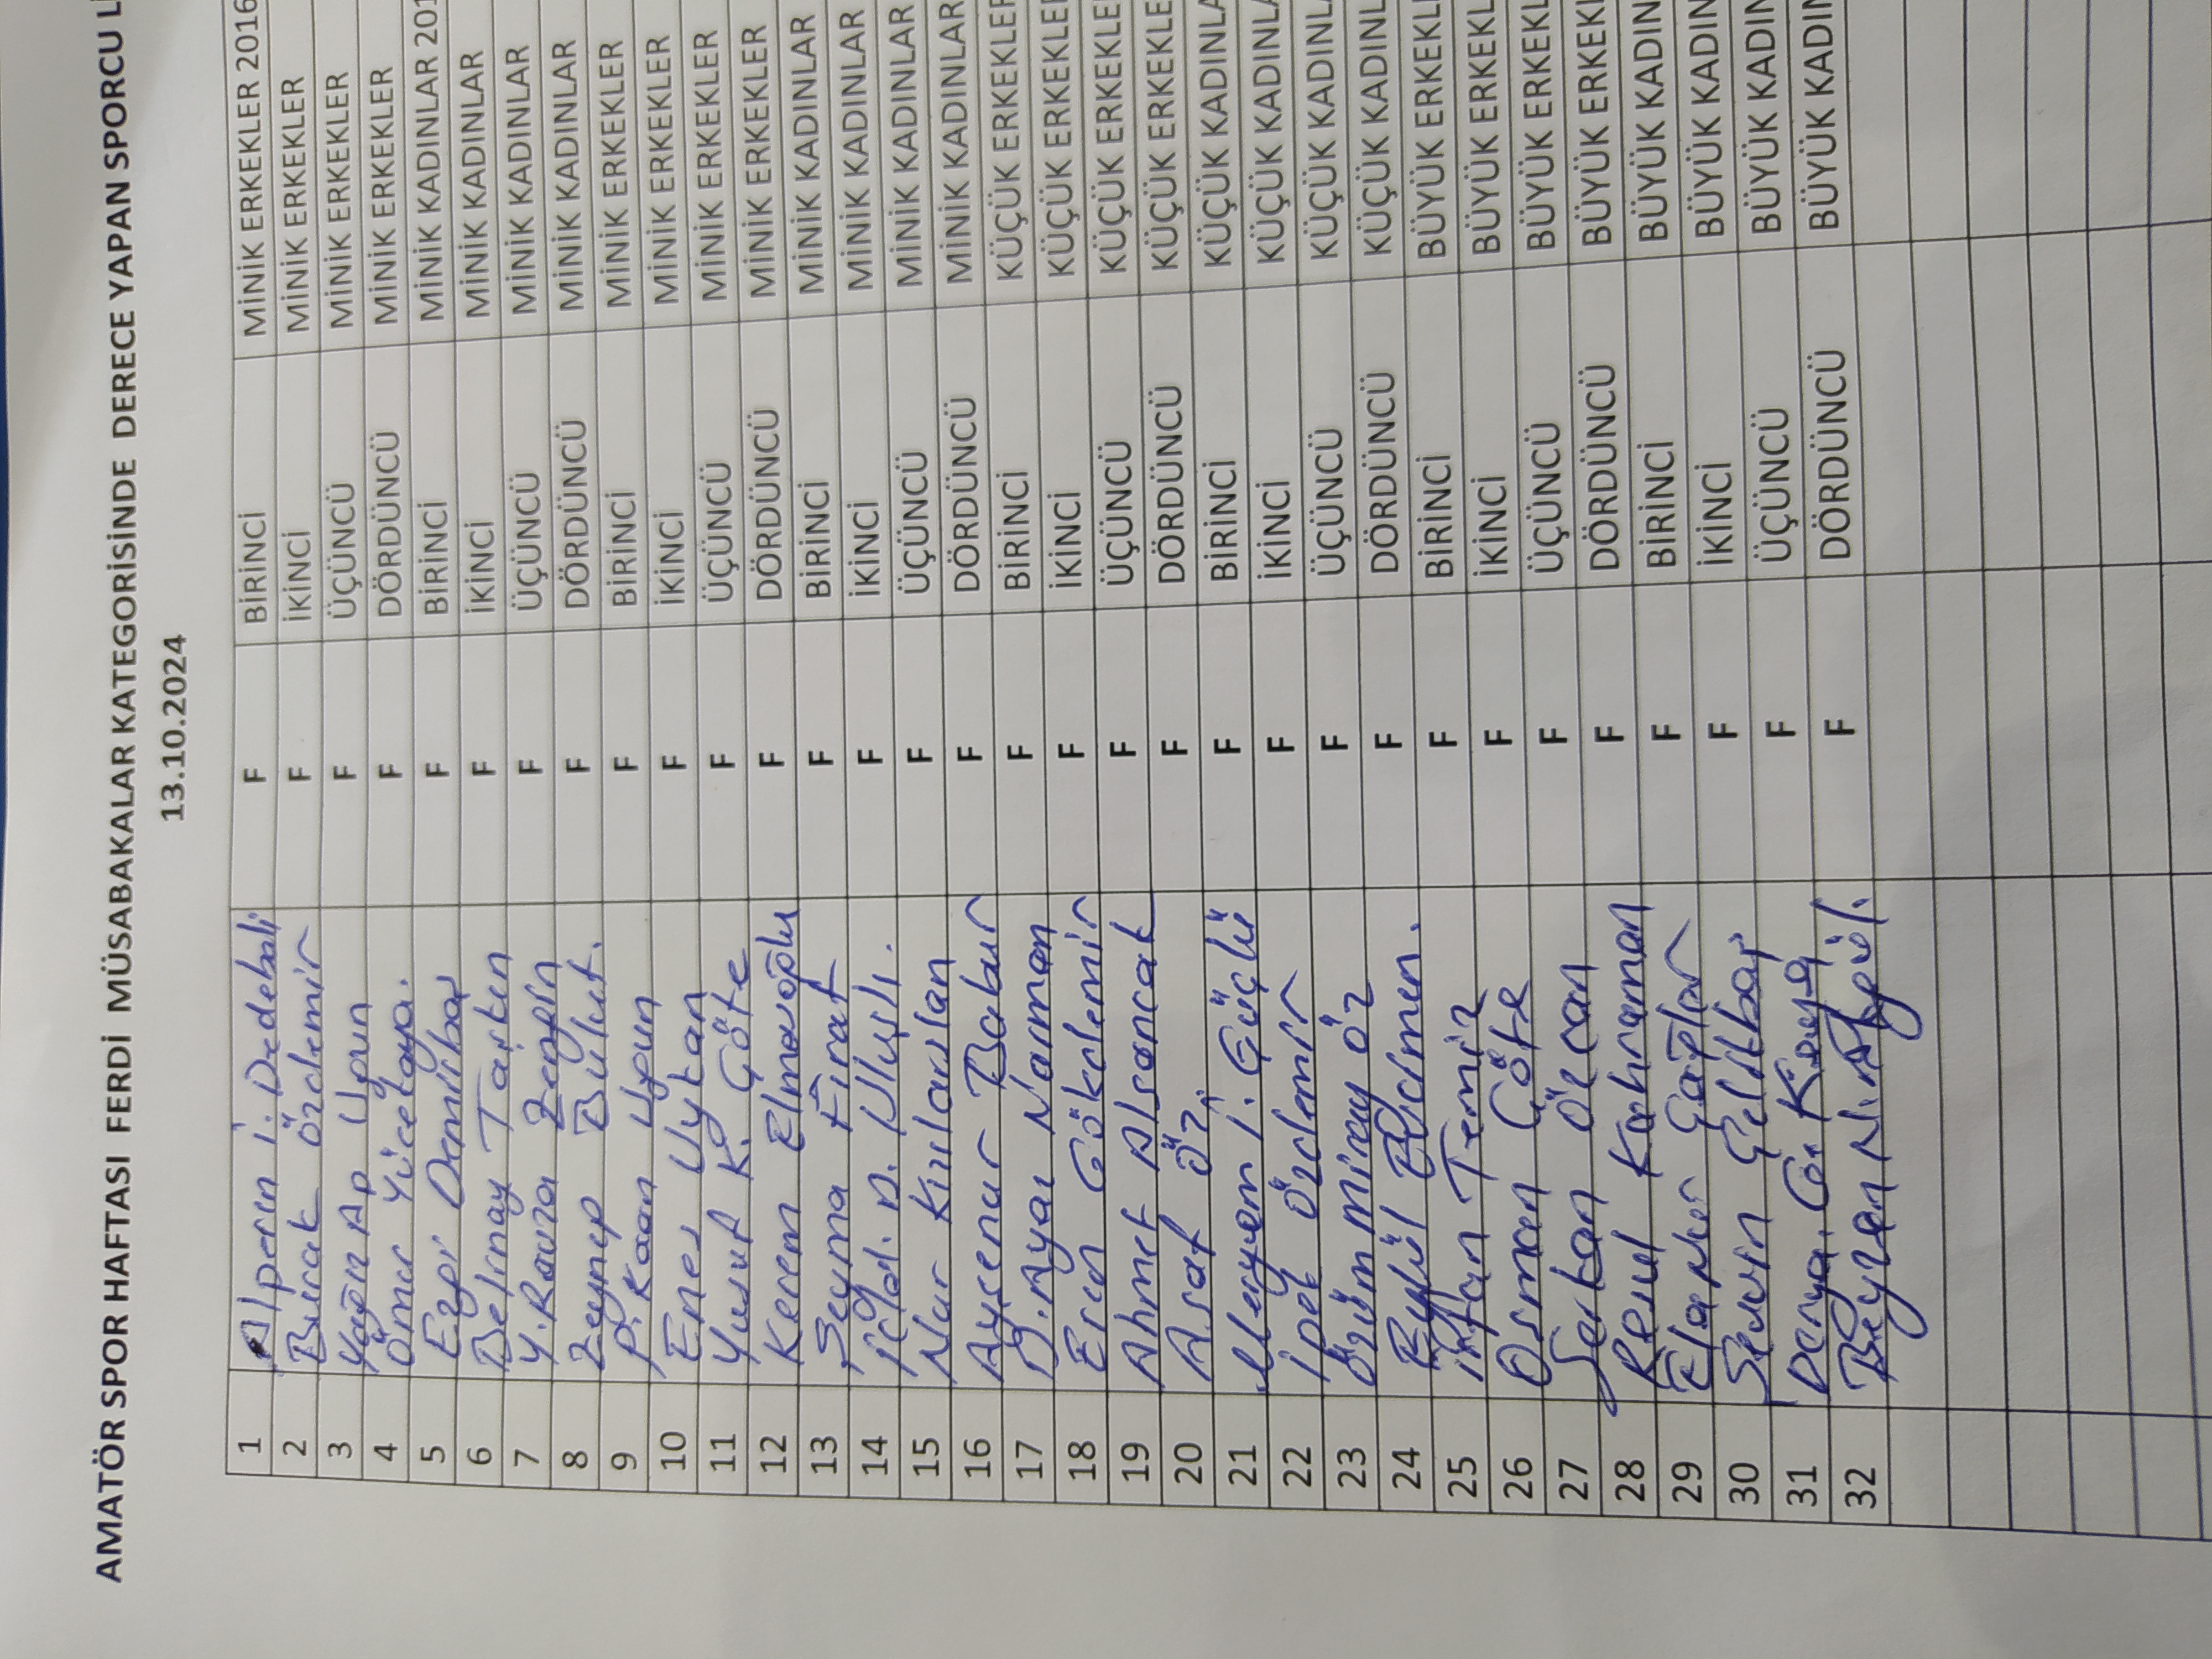 AMATÖR SPOR HAFTASI FERDİ MÜSABAKALAR KATEGORİSİNDE DERECE YAPAN SPORCU L
13.10.2024
1 Alperen İ. Dedebali F BİRİNCİ MİNİK ERKEKLER 2016
2 Burak Özdemir F İKİNCİ MİNİK ERKEKLER
3 Yağız Ap Uğun F ÜÇÜNCÜ MİNİK ERKEKLER
4 Ömer Yücekaya. F DÖRDÜNCÜ MİNİK ERKEKLER
5 Ezgi Demirbaş F BİRİNCİ MİNİK KADINLAR 201
6 Belinay Taşkın F İKİNCİ MİNİK KADINLAR
7 Y. Ravza Zengin F ÜÇÜNCÜ MİNİK KADINLAR
8 Zeynep Bulut. F DÖRDÜNCÜ MİNİK KADINLAR
9 P. Kaan Uğun F BİRİNCİ MİNİK ERKEKLER
10 Enes Uytan F İKİNCİ MİNİK ERKEKLER
11 Yusuf K. Göte F ÜÇÜNCÜ MİNİK ERKEKLER
12 Kerem Elmavoğlu F DÖRDÜNCÜ MİNİK ERKEKLER
13 Seyma Fırat F BİRİNCİ MİNİK KADINLAR
14 D. Uluşlı. F İKİNCİ MİNİK KADINLAR
15 Nur Kızılarslan F ÜÇÜNCÜ MİNİK KADINLAR
16 Ayşenur Babur F DÖRDÜNCÜ MİNİK KADINLAR
17 B. Ayaz Naman F BİRİNCİ KÜÇÜK ERKEKLER
18 Eren Gökdemir F İKİNCİ KÜÇÜK ERKEKLE
19 Ahmet Alsancak F ÜÇÜNCÜ KÜÇÜK ERKEKLE
20 Asaf Öz. F DÖRDÜNCÜ KÜÇÜK ERKEKLE
21 Meryem İ. Güçlü F BİRİNCİ KÜÇÜK KADINLA
22 İpek Özdemir F İKİNCİ KÜÇÜK KADINLA
23 Özüm Miray Öz F ÜÇÜNCÜ KÜÇÜK KADINL
24 Eylül Biçimen. F DÖRDÜNCÜ KÜÇÜK KADINL
25 İrfan Temiz F BİRİNCİ BÜYÜK ERKEKL
26 Osman Göte F İKİNCİ BÜYÜK ERKEKL
27 Serkan Özcan F ÜÇÜNCÜ BÜYÜK ERKEKL
28 Resul Kahraman F DÖRDÜNCÜ BÜYÜK ERKEK
29 Elanur Çağlar F BİRİNCİ BÜYÜK KADIN
30 Sevgin F İKİNCİ BÜYÜK KADIN
31 Derya Kaya F ÜÇÜNCÜ BÜYÜK KADIN
32 Beyzan N. Akgül. F DÖRDÜNCÜ BÜYÜK KADIN